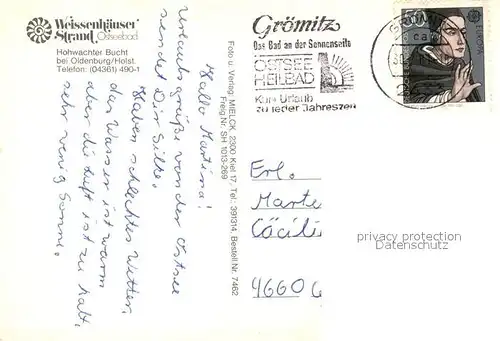 Weissenhäuser
Strand Ostseebad
Hohwachter Bucht
bei Oldenburg/Holst.
Telefon: (04361) 490-1
Hallo Martina!
Urlaubsgrüße von der Ostsee
sendet Dir Silke.
Haben schlechtes Wetter,
das Wasser ist warm
aber die Luft ist zu kalt,
sehr wenig Sonne.
Foto u. Verlag: MIELCK, 2300 Kiel 17, Tel.: 391314, Bestell.Nr. 7462
Freig.Nr. SH 1013-269
Grömitz
Das Bad an der Sonnenseite
OSTSEE
HEILBAD
Kur + Urlaub
zu jeder Jahreszeit
EUROPA
Erl.
Marte
Cäcili
4660
privacy protection
Datenschutz